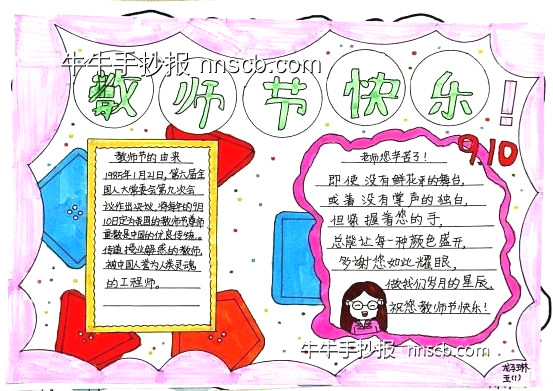 牛牛手抄报 nnscb.com
教师节快乐!
9.10
教师节的由来
1985年1月21日,第六届全
国人大常委会第九次会
议作出决议,将每年的9月
10日定为我国的教师节尊师
重教是中国的优良传统。
传道授业解惑的教师,
被中国人誉为人类灵魂
的工程师。
老师您辛苦了!
即使没有鲜花和的舞台,
或者没有掌声的独白,
但紧握着您的手,
总能让每一种颜色盛开,
多谢您如此耀眼,
做我们岁月的星辰,
祝您教师节快乐!
牛牛手抄报 nnscb.com